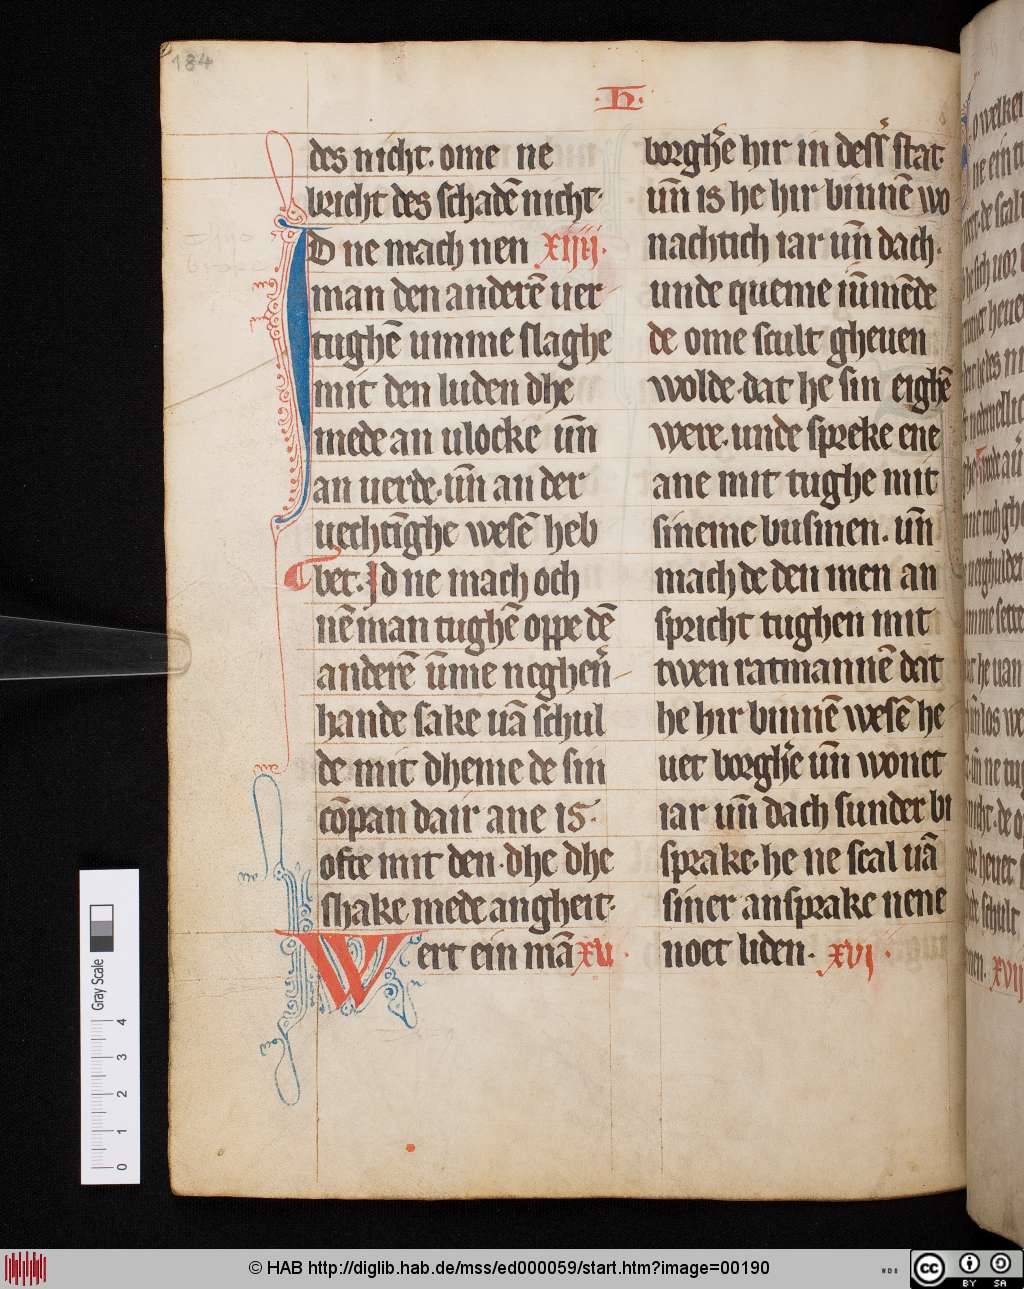 184
·h·
des nicht· ome ne
bricht des schadē nicht·
ID ne mach nen xiiij·
man den anderē uer
tughē umme slaghe
mit den luden dhe
mede an ulocke uñ
an uerde· uñ an der
uechtīghe wesē heb
bet· Jd ne mach och
nē man tughē oppe dē
anderē ūme neghen̄
hande sake uā schul
de mit dheme de sin
cōpan dair ane is·
ofte mit den· dhe dhe
shake mede angheit·
Wert ein mā xv·
borgh'e hir in dess' stat·
uñ is he hir binnē wo
nachtich iar uñ dach·
unde queme iūmēde
de ome scult gheuen
wolde· dat he sin eighē
were· unde spreke ene
ane mit tughe mit
sineme busmen· uñ
mach de den men an
spricht tughen mit
twen ratmannē dat
he hir binnē wesē he
uet borgh'e uñ wonet
iar uñ dach sunder bi
sprake· he ne scal uā
siner ansprake nene
noet liden· xvi·
0 1 2 3 4
Gray Scale
© HAB http://diglib.hab.de/mss/ed000059/start.htm?image=00190
WDB
cc
BY SA